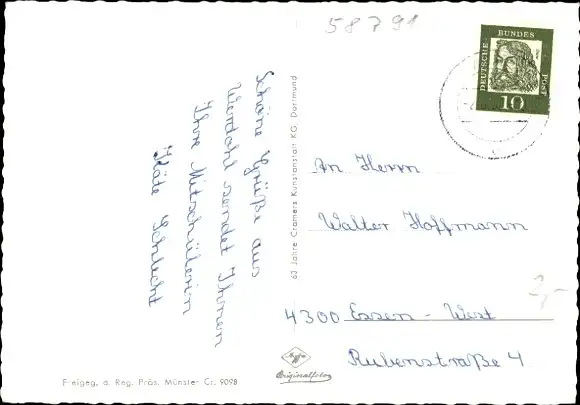 58791
DEUTSCHE BUNDESPOST
10
Schöne Grüße aus
Werdohl sendet Ihnen
Ihre Mitschülerin
Käte Schlecht
63 Jahre Cramers Kunstanstalt KG, Dortmund
An Herrn
Walter Hoffmann
4300 Essen - West
Rubenstraße 4
2,-
Originalfoto
Freigeg. d. Reg. Präs. Münster Cr. 9098